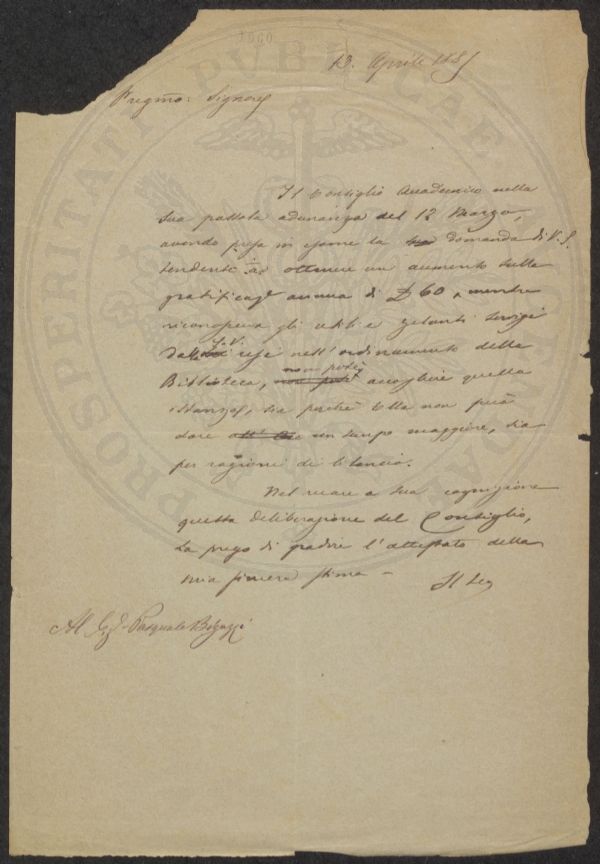 13. Aprile 185
Pregmo: Signore
Il Consiglio Accademico nella
sua passata adunanza del 12 Marzo,
avendo presa in esame la domanda di V. S.
tendente ad ottenere un aumento sulla
gratificazе annua di £ 60, mentre
riconosceva gli utili e zelanti servigi
dalla S. V. resi nell'ordinamento della
Biblioteca, non potè accogliere quella
istanza, sia perchè Ella non può
dare un tempo maggiore, sia
per ragioni di bilancio.
Nel recare a sua cognizione
questa deliberazione del Consiglio,
La prego di gradire l'attestato della
mia sincera stima — Il Seg
Al Sig. Pasquale Bigazzi
PROSPERITATI PVBLICAE